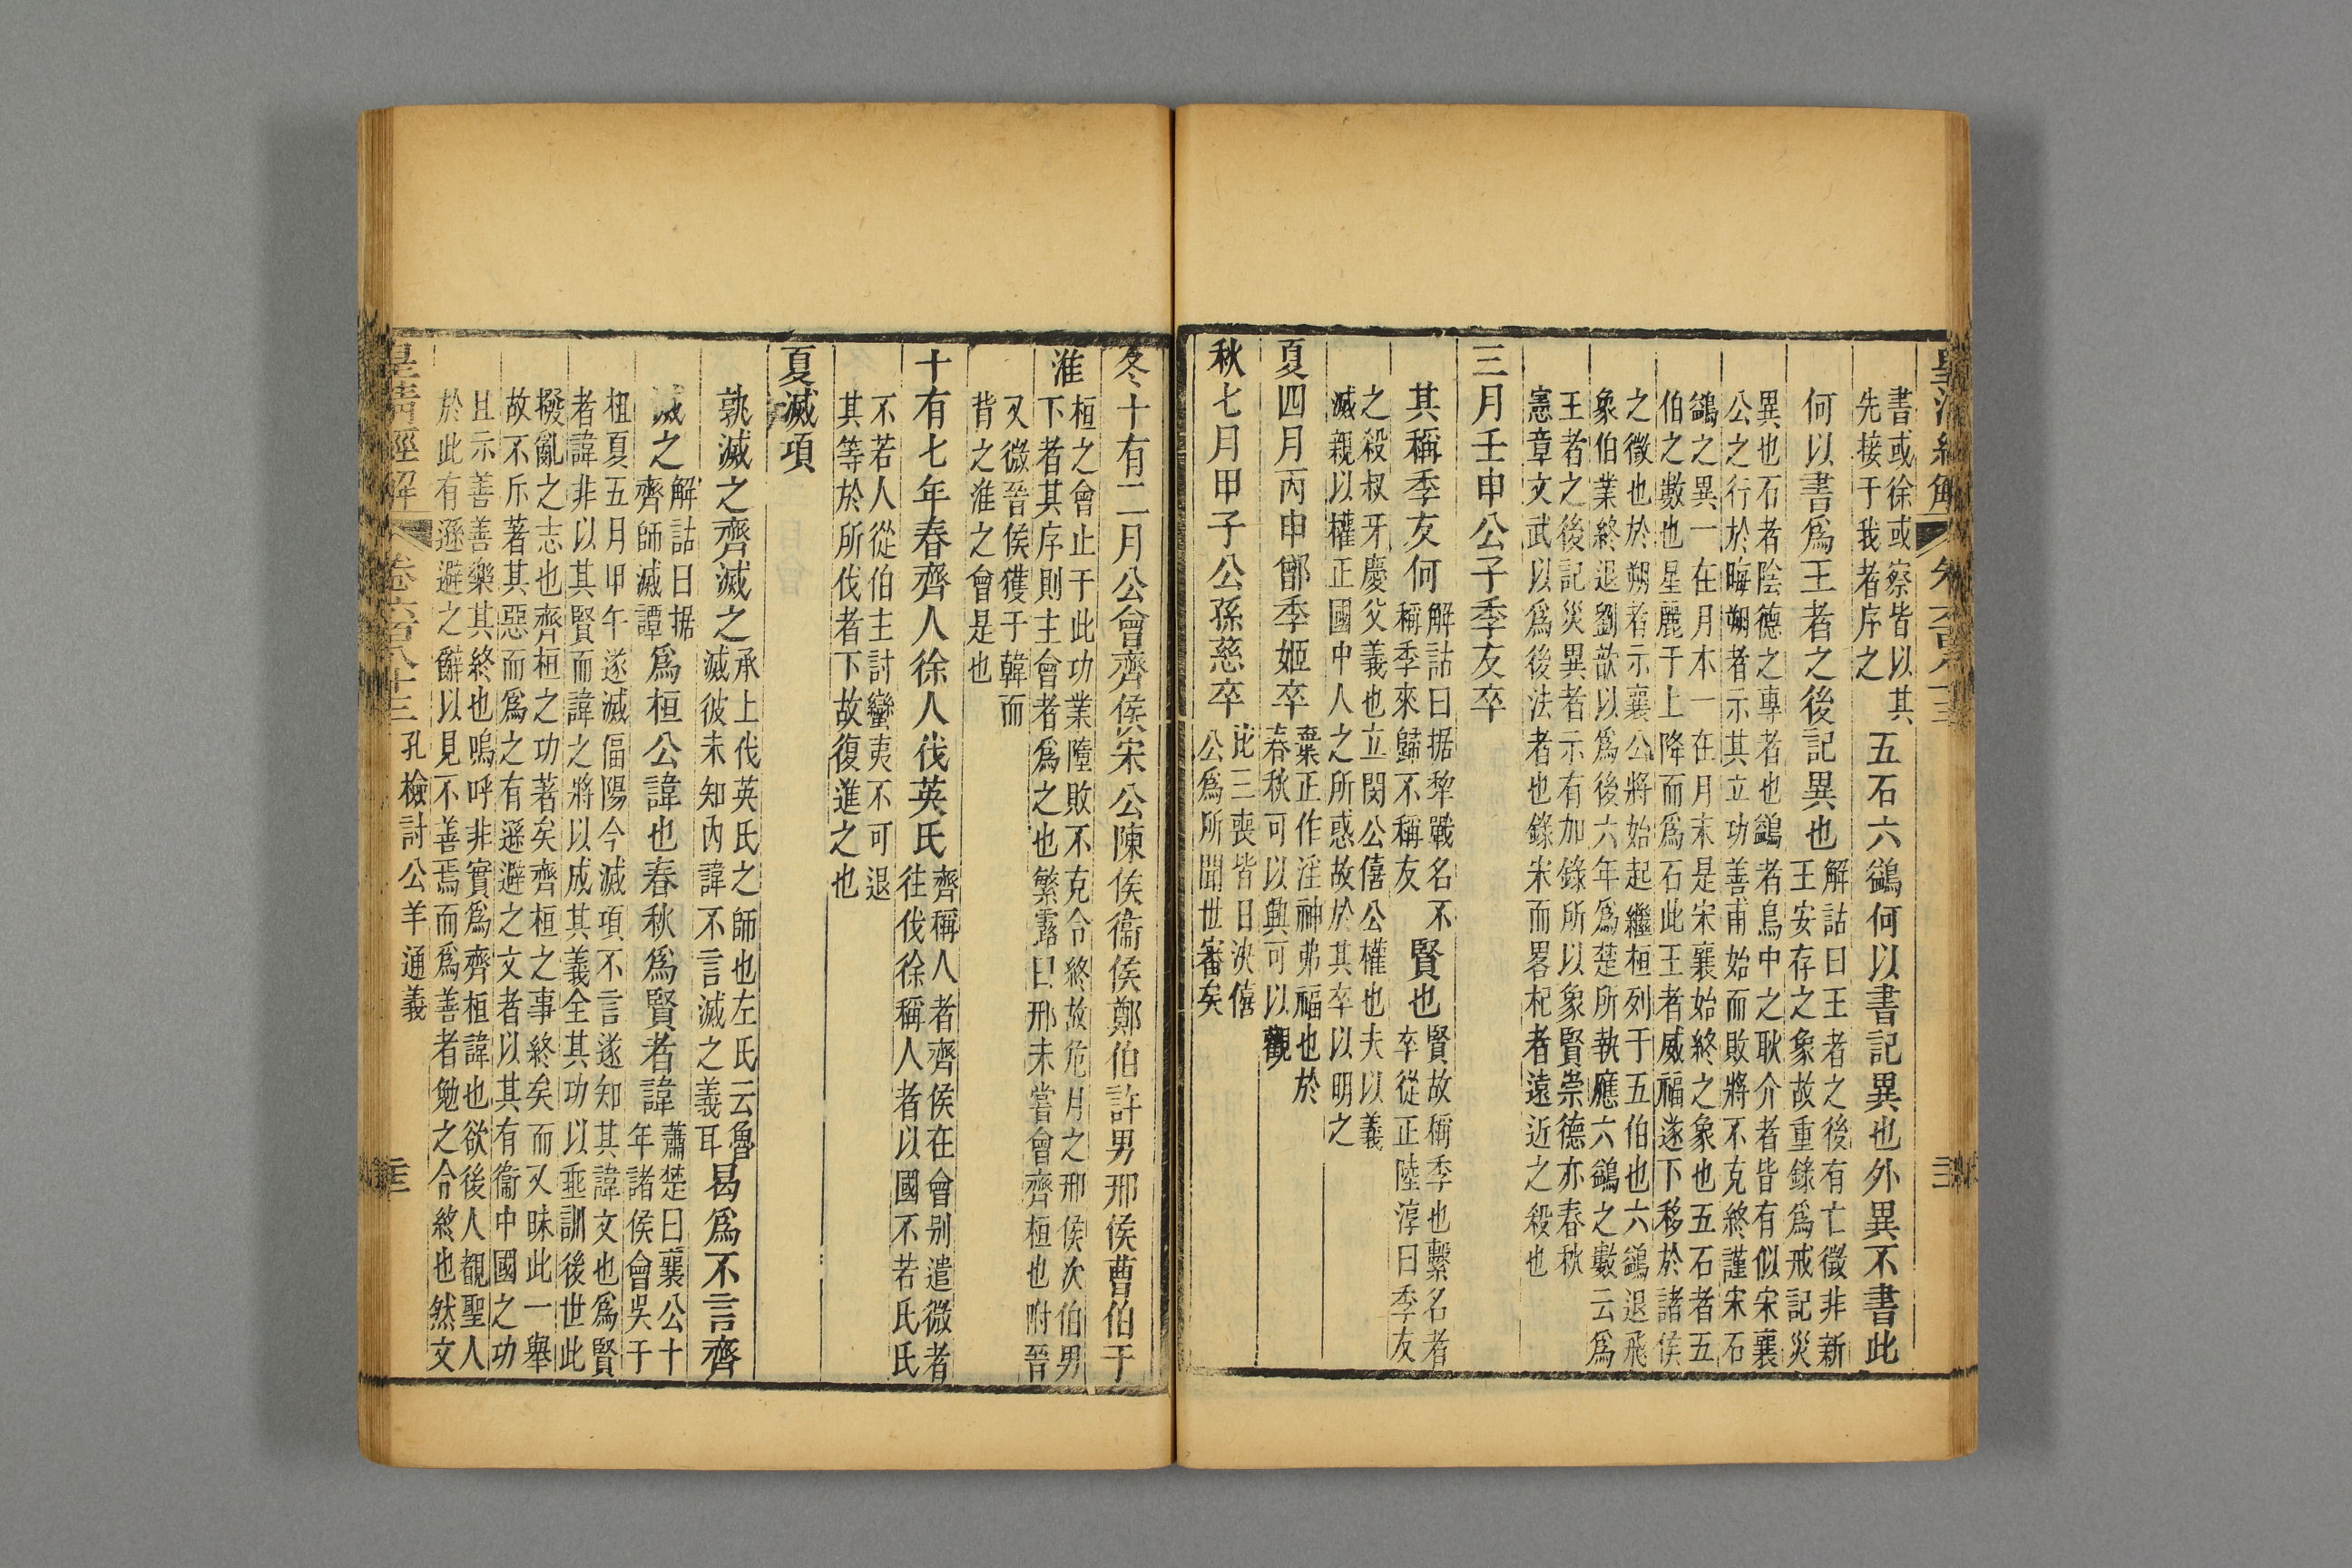 皇清經解 卷六百八十三
書或徐或察皆以其
先接于我者序之
五石六鷁何以書記異也外異不書此
何以書爲王者之後記異也
解詁曰王者之後有亡徵非新
王安存之象故重錄爲戒記災
異也石者陰德之專者也鷁者鳥中之耿介者皆有似宋襄
公之行於晦朔者示其立功善甫始而敗將不克終謹宋石
鷁之異一在月本一在月末是宋襄始終之象也五石者五
伯之數也星麗于上降而爲石此王者威福遂下移於諸侯
之徵也於朔者示襄公將始起繼桓列于五伯也六鷁退飛
象伯業終退劉歆以爲後六年爲楚所執應六鷁之數云爲
王者之後記災異者示有加錄所以象賢崇德亦春秋
憲章文武以爲後法者也錄宋而畧杞者遠近之殺也
三月壬申公子季友卒
其稱季友何
解詁曰据犂戰名不
稱季來歸不稱友
賢也
賢故稱季也繫名者
卒從正陸淳曰季友
之殺叔牙慶父義也立閔公僖公權也夫以義
滅親以權正國中人之所惑故於其卒以明之
夏四月丙申鄫季姬卒
葉正作淫神弗福也於
春秋可以興可以觀
秋七月甲子公孫慈卒
比三喪皆日決僖
公爲所聞世審矣
冬十有二月公會齊侯宋公陳侯衞侯鄭伯許男邢侯曹伯于
淮
桓之會止于此功業隳敗不克令終故危月之邢侯次伯男
下者其序則主會者爲之也繁露曰邢未嘗會齊桓也附晉
又微晉侯獲于韓而
背之淮之會是也
十有七年春齊人徐人伐英氏
齊稱人者齊侯在會別遣微者
往伐徐稱人者以國不若氏氏
不若人從伯主討蠻夷不可退
其等於所伐者下故復進之也
夏滅項
孰滅之齊滅之
承上伐英氏之師也左氏云魯
滅彼未知內諱不言滅之義耳
曷爲不言齊
滅之
解詁曰据
齊師滅譚
爲桓公諱也春秋爲賢者諱
蕭楚曰襄公十
年諸侯會吳于
柤夏五月甲午遂滅偪陽今滅項不言遂知其諱文也爲賢
者諱非以其賢而諱之將以成其義全其功以垂訓後世此
撥亂之志也齊桓之功著矣齊桓之事終矣而又昧此一舉
故不斥著其惡而爲之有遜避之文者以其有衞中國之功
且示善善樂其終也嗚呼非實爲齊桓諱也欲後人觀聖人
於此有遜避之辭以見不善焉而爲善者勉之令終也然文
皇清經解 卷六百八十三 孔檢討公羊通義